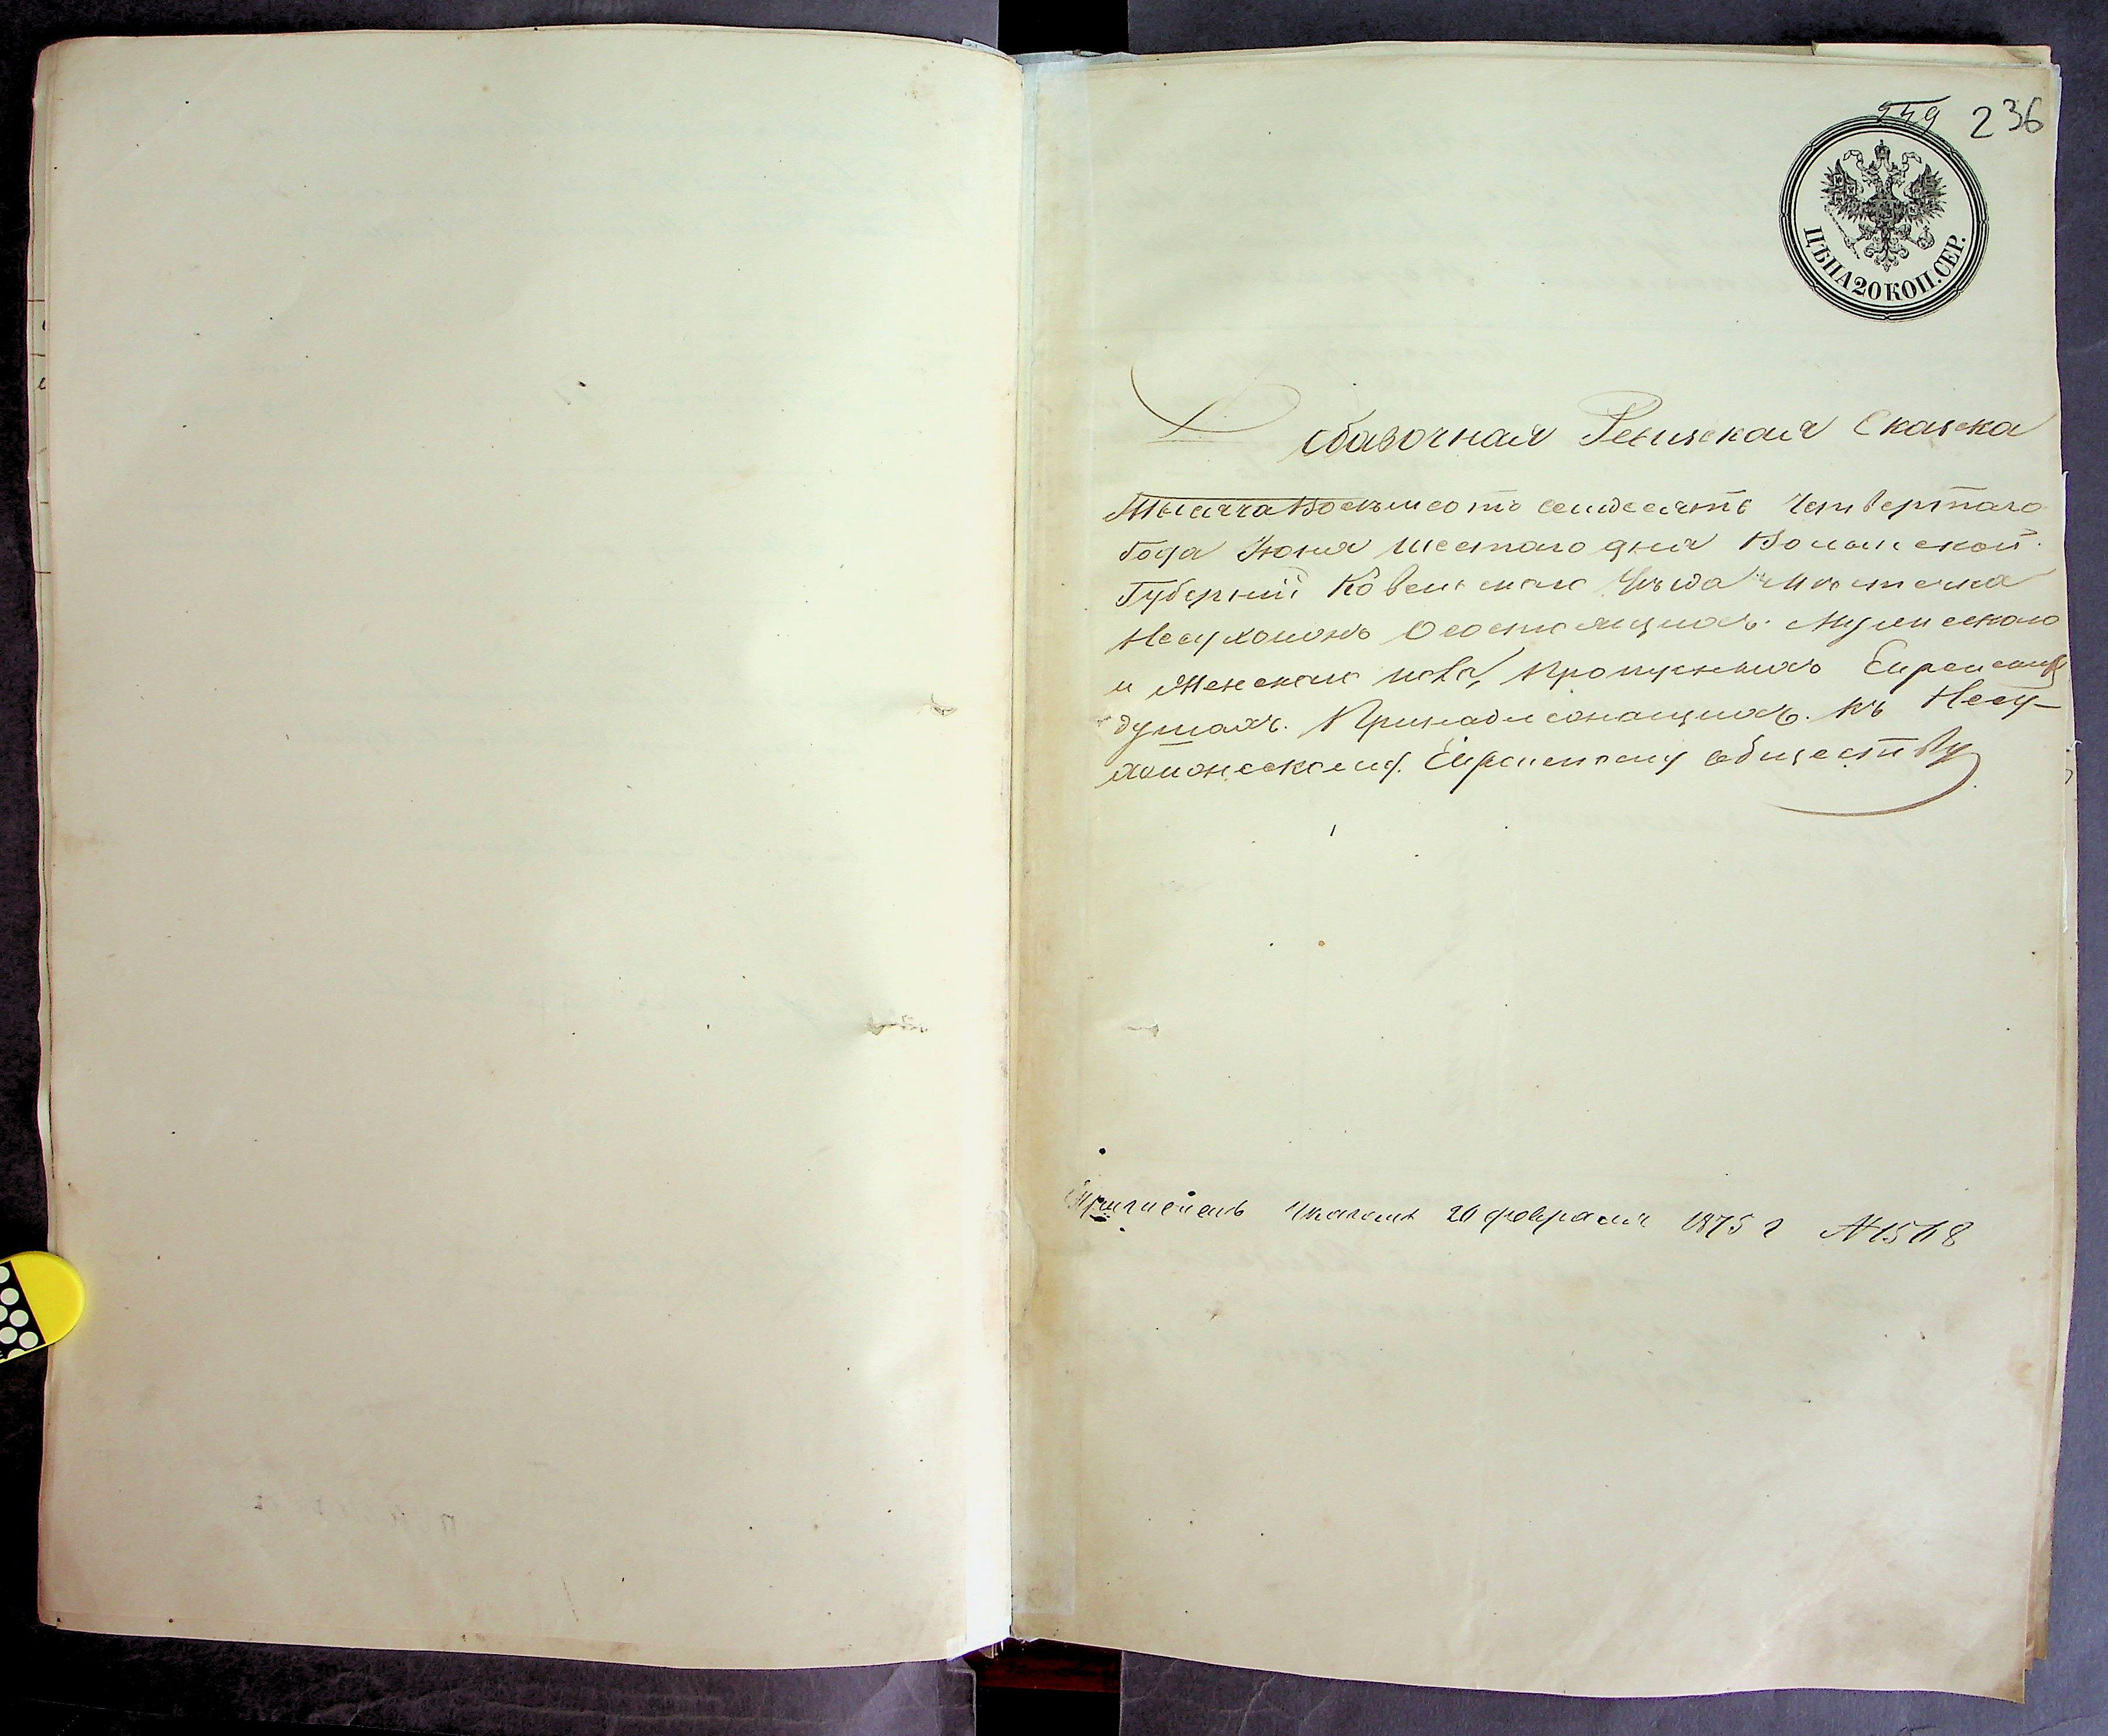 259 236
ЦѢНА 20 КОП. СЕР.
Добавочная Ревизская Сказка
Тысяча Восемьсотъ семдесятъ Четвертаго
Года Июня шестаго дня Волынской
Губерніи Ковельскаго Уѣзда Мѣстечка
Несухоижъ О состоящихъ Мужескаго
и Женскаго пола, Пропускныхъ Еврейскихъ
душахъ. Принадлежащихъ къ Несу-
хоижскому Еврейскому обществу
Причислены Указомъ 20 февраля 1875 г №